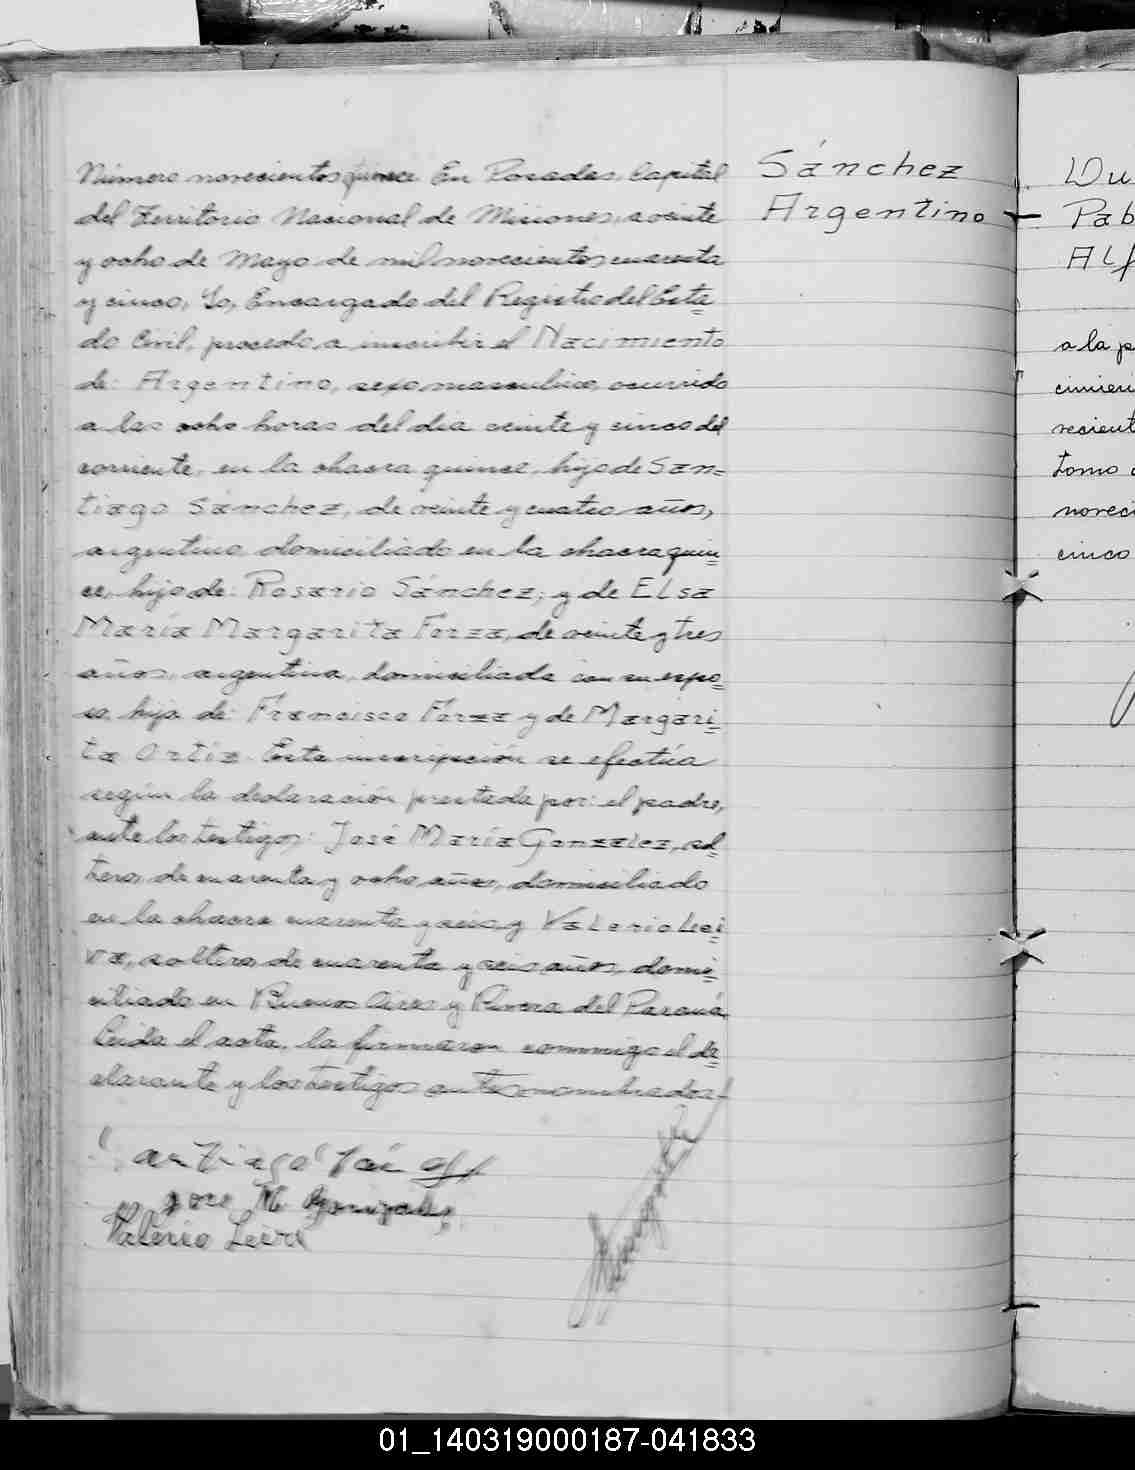 Número novecientos quince. En Posadas, Capital
del Territorio Nacional de Misiones, a veinte
y ocho de Mayo de mil novecientos cuarenta
y cinco, Yo, Encargado del Registro del Esta=
do Civil, procedo a inscribir el Nacimiento
de: Argentino, sexo masculino, ocurrido
a las ocho horas del día veinte y cinco del
corriente, en la chacra quince, hijo de San=
tiago Sánchez, de veinte y cuatro años,
argentino, domiciliado en la chacra quin=
ce, hijo de: Rosario Sánchez; y de Elsa
María Margarita Ferza, de veinte y tres
años, argentina, domiciliada con su espo=
so, hija de: Francisco Ferza y de Margari=
ta Ortiz. Esta inscripción se efectúa
según la declaración prestada por: el padre,
ante los testigos: José María Gonzalez, sol=
tero, de cuarenta y ocho años, domiciliado
en la chacra cuarenta y seis, y Valerio Lei=
va, soltero, de cuarenta y seis años, domi=
ciliado en Buenos Aires y Rivera del Paraná.
Leída el acta, la firmaron conmigo el de=
clarante y los testigos antes nombrados.-
Santiago Sánchez
Jose M. Gonzales
Valerio Leiva
Sánchez
Argentino
Du
Pab
Alf
a la p
cimien
recient
tomo
noveci
cinco
01_140319000187-041833